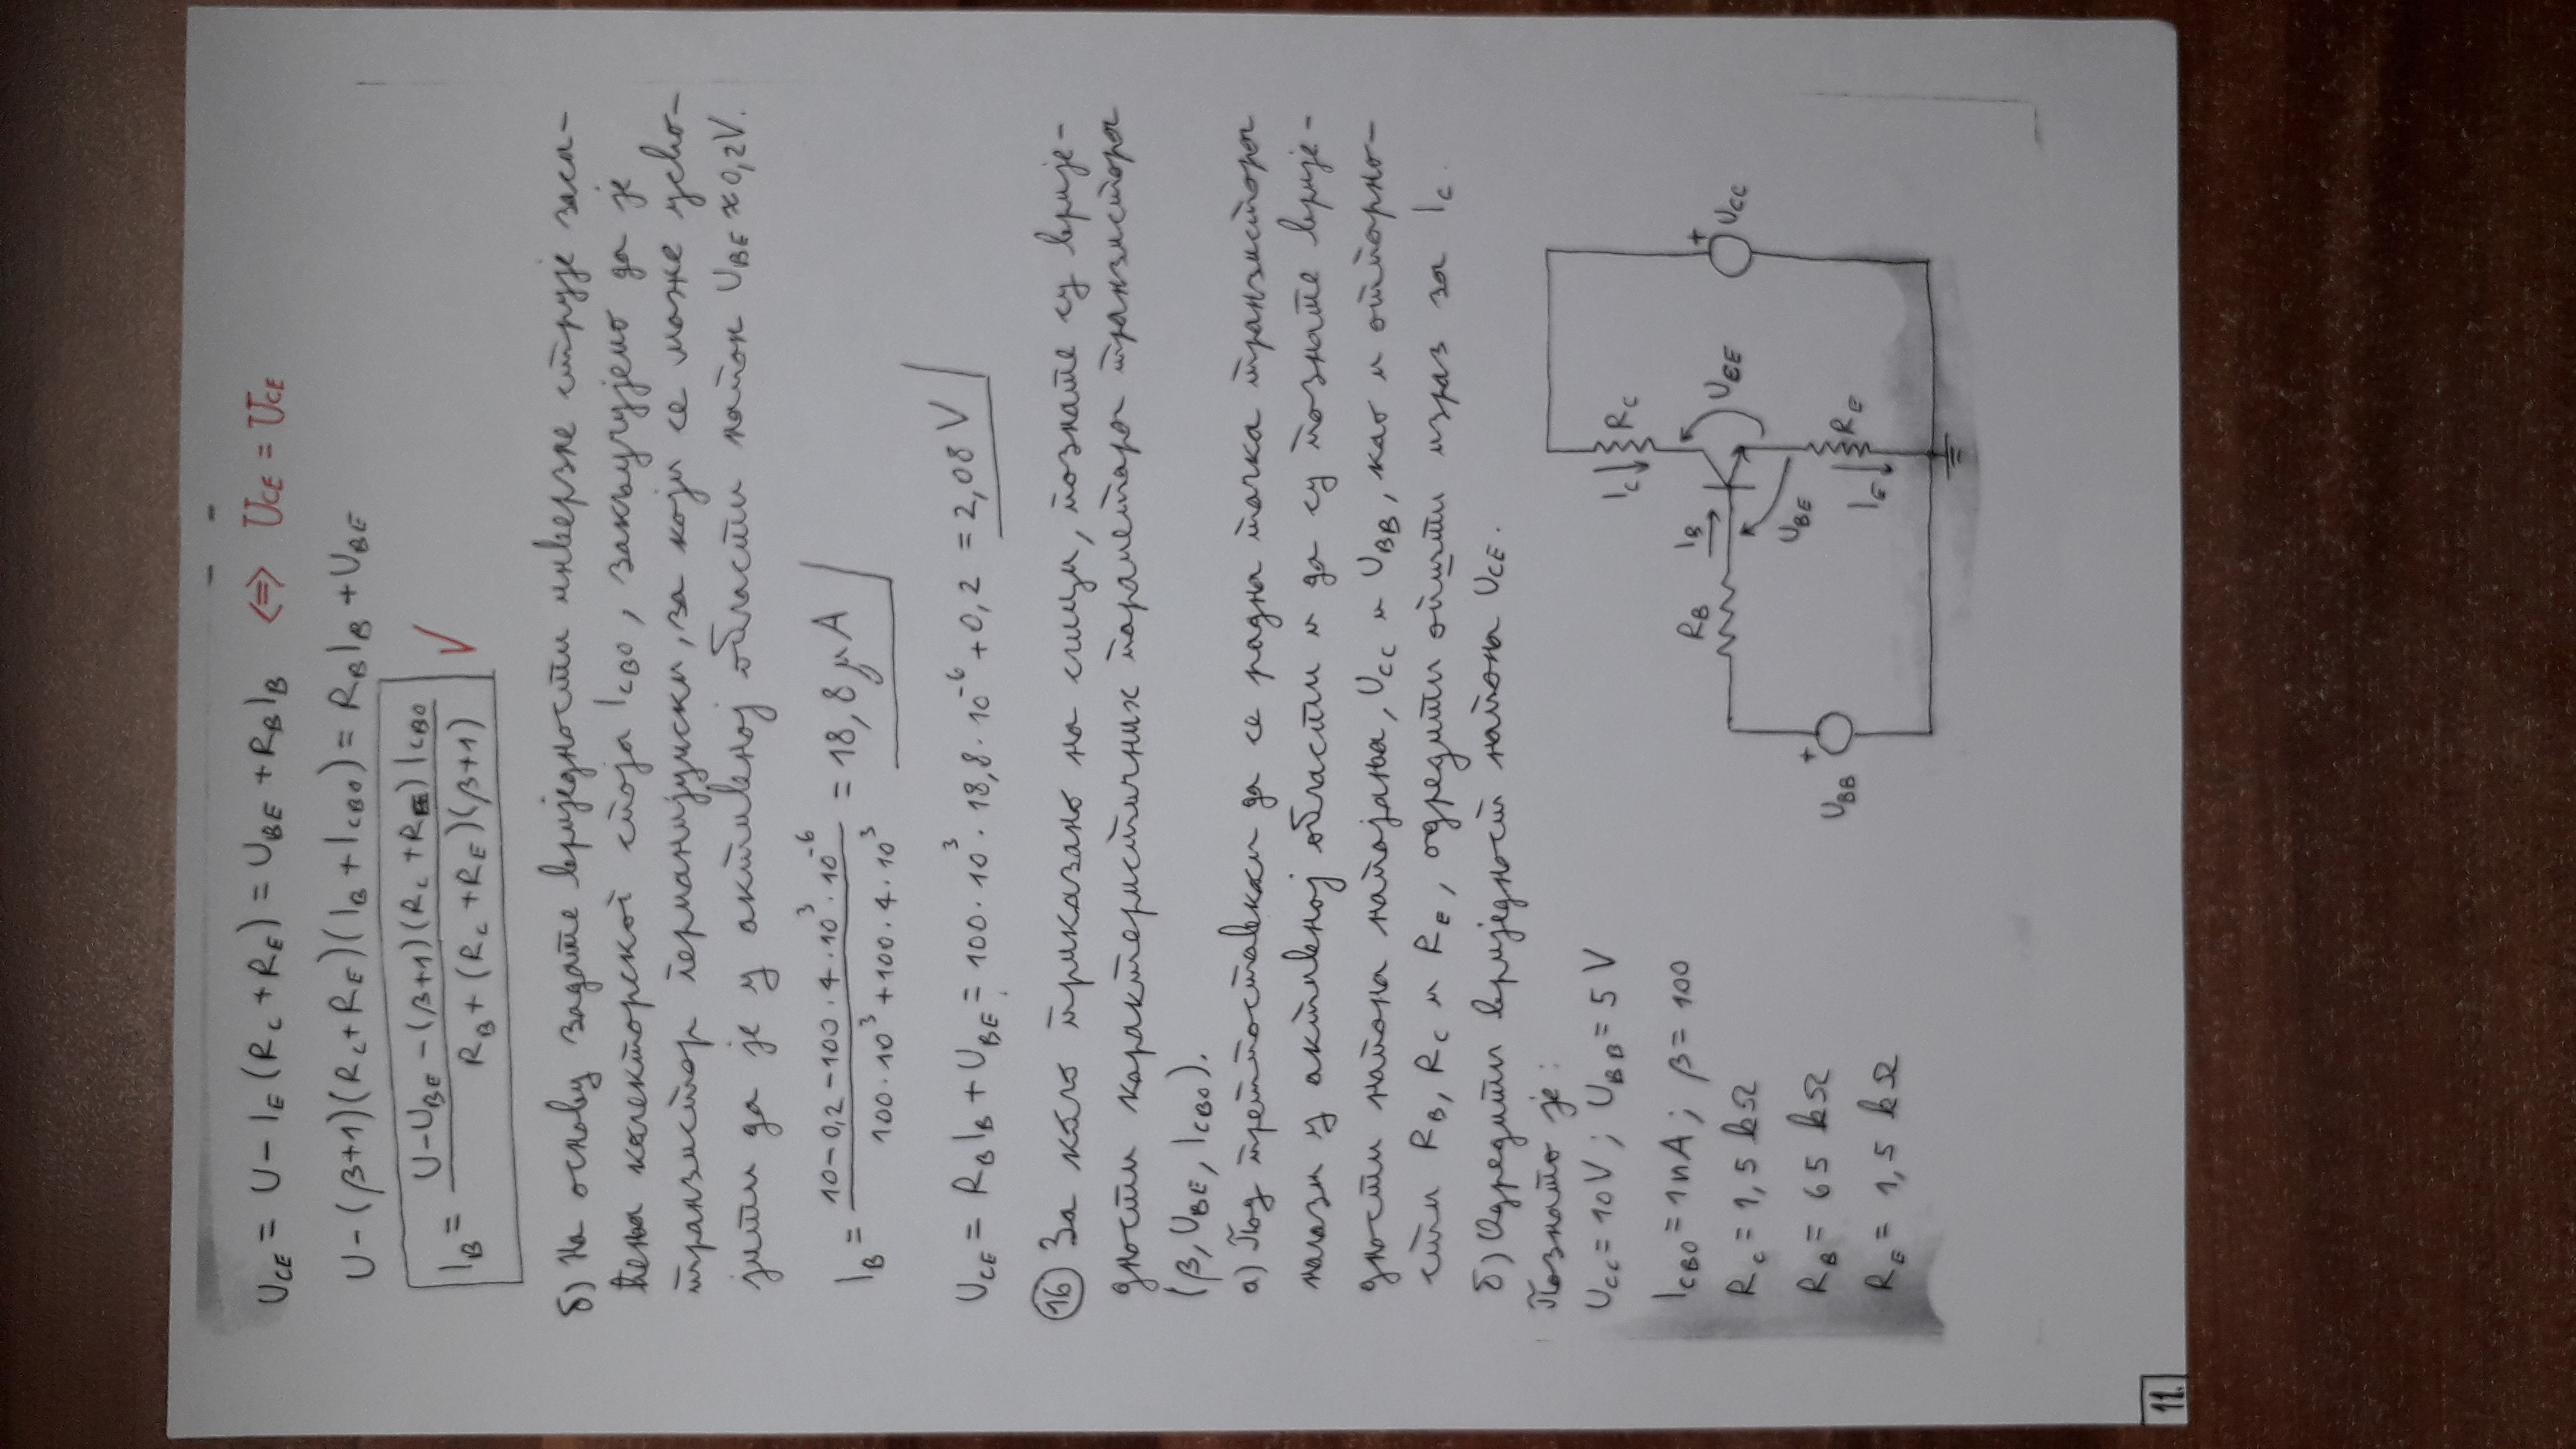 U_CE = U - I_E (R_C + R_E) = U_BE + R_B I_B <=> U_CE = U_CE
U - (β+1)(R_C + R_E)(I_B + I_CB0) = R_B I_B + U_BE
I_B = (U - U_BE - (β+1)(R_C + R_E) I_CB0) / (R_B + (R_C + R_E)(β+1)) ✓
б) На основу задате вриједности инверзне струје заси-
ћења колекторског споја I_CB0, закључујемо да је
транзистор германијумски, за који се може усво-
јити да је у активној области напон U_BE ≈ 0,2V.
I_B = (10 - 0,2 - 100 · 4 · 10^3 · 10^-6) / (100 · 10^3 + 100 · 4 · 10^3) = 18,8 μA
U_CE = R_B I_B + U_BE = 100 · 10^3 · 18,8 · 10^-6 + 0,2 = 2,08 V
16 За коло приказано на слици, познате су врије-
дности карактеристичних параметара транзистора
(β, U_BE, I_CB0).
а) Под претпоставком да се радна тачка транзистора
налази у активној области и да су познате врије-
дности напона напајања, U_CC и U_BB, као и отпорно-
сти R_B, R_C и R_E, одредити општи израз за I_C
б) Одредити вриједност напона U_CE.
Познато је:
U_CC = 10V ; U_BB = 5 V
I_CB0 = 1nA ; β = 100
R_C = 1,5 kΩ
R_B = 65 kΩ
R_E = 1,5 kΩ
I_C R_C
R_B I_B
U_CE + U_CC
U_BE
+ U_BB
I_E R_E
11.